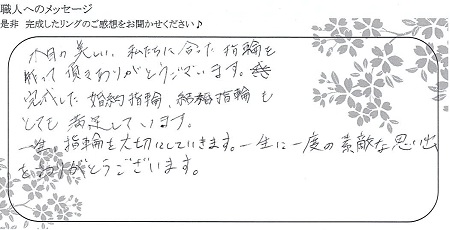 職人へのメッセージ
是非 完成したリングのご感想をお聞かせください♪
木目の美しい、私たちに合った指輪を
作って頂きありがとうございます。
完成した婚約指輪、結婚指輪も
とても満足しています。
一生、指輪を大切にしていきます。一生に一度の素敵な思い出
をありがとうございます。